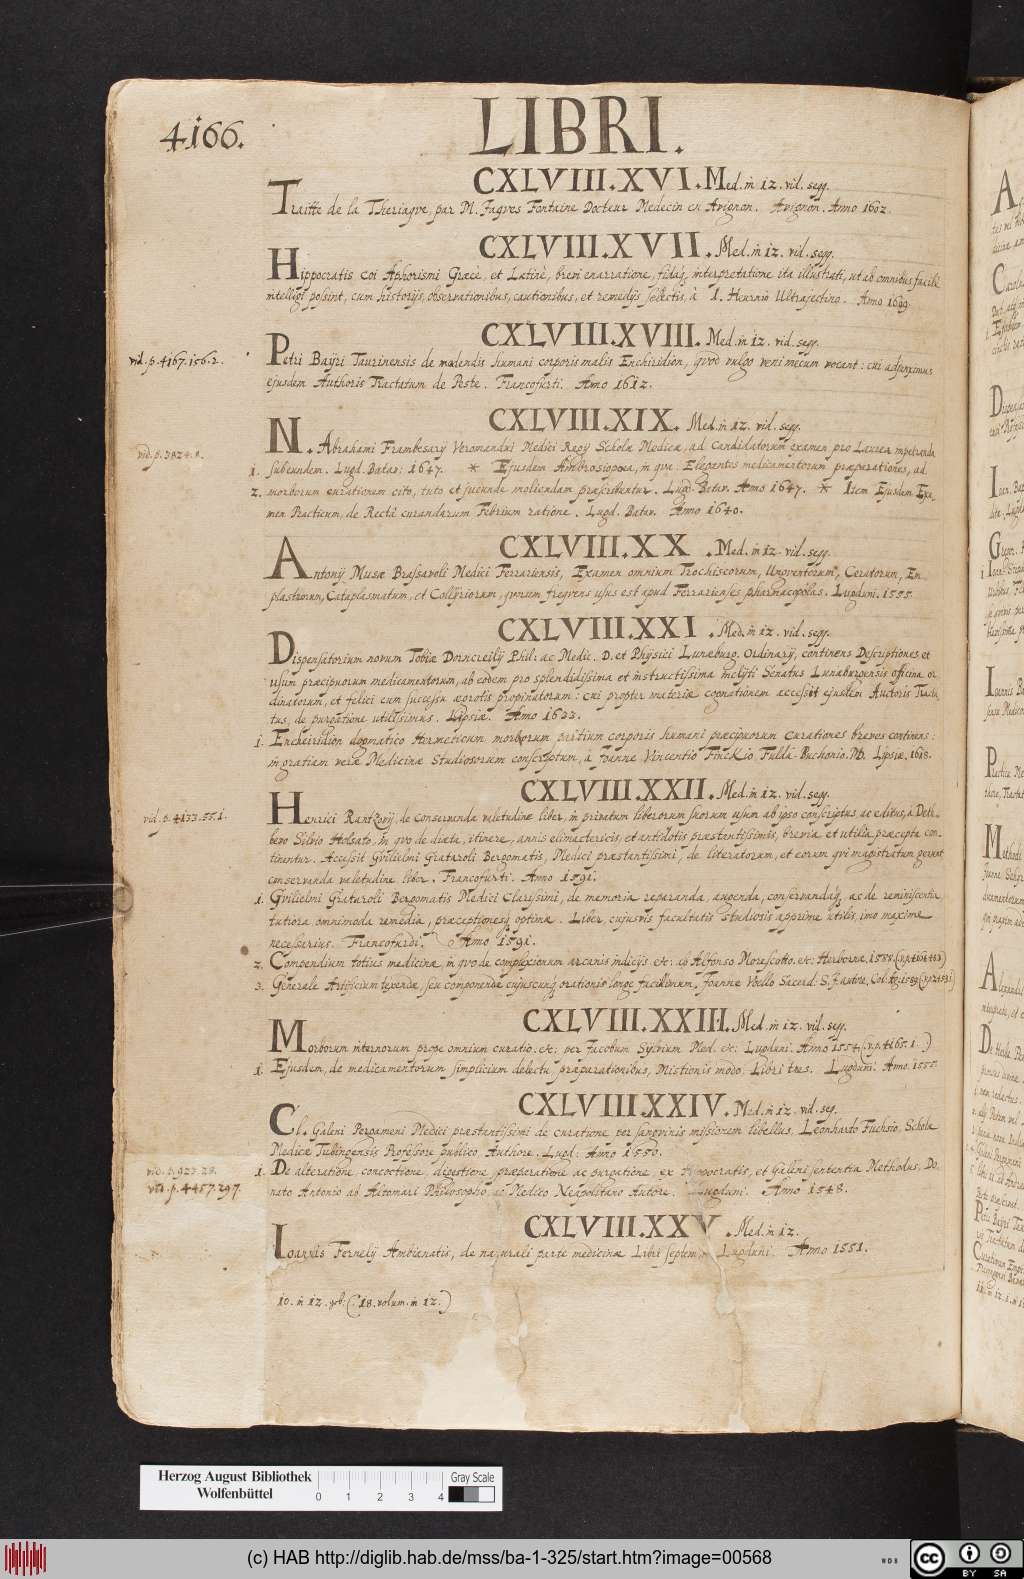 4166.
LIBRI.
CXLVIII.XVI. Med. in 12. vid. seqq.
Traitté de la Theriaqve, par M. Jaqves Fontaine Docteur Medecin en Avignon. Avignon. Anno 1602.
CXLVIII.XVII. Med. in 12. vid. seqq.
Hippocratis Coi Aphorismi Græcè, et Latinè, brevi enarratione, fidaq, interpretatione ita illustrati, ut ab omnibus facilè
intelligi possint, cum historijs, observationibus, cautionibus, et remedijs selectis, à I. Heurnio Ultrajectino. Anno 1609.
CXLVIII.XVIII. Med. in 12. vid. seqq.
vid. p. 4167.156.2.
Petri Bayri Taurinensis de medendis humani corporis malis Enchiridion, qvod vulgo veni mecum vocant: cui adjunximus
ejusdem Authoris Tractatum de Peste. Francofurti. Anno 1612.
CXLVIII.XIX. Med. in 12. vid. seqq.
vid. p. 3824.
N. Abrahami Frambesarij Veromandui Medici Regij Scholæ Medicæ, ad Candidatorum examen pro Laurea impetranda
1. subeundem. Lugd. Batav: 1647. * Ejusdem Ambrosiopœa, in qva Elegantes medicamentorum præparationes, ad
2. morborum curationem cito, tuto et jucunde moliendam præscribuntur. Lugd. Batav. Anno 1647. * Item Ejusdem Exa-
men Practicum, de Rectè curandarum Febrium ratione. Lugd. Batav. Anno 1640.
CXLVIII.XX. Med. in 12. vid. seqq.
Antonij Musæ Brassavoli Medici Ferrariensis, Examen omnium Trochiscorum, Unguentorum, Ceratorum, Em-
plastrorum, Cataplasmatum, et Collyriorum, qvorum freqvens usus est apud Ferrarienses pharmacopolas. Lugduni. 1555.
CXLVIII.XXI. Med. in 12. vid. seqq.
Dispensatorium novum Tobiæ Dorncreilij Phil: ac Medic. D. et Physici Lunæburg. Ordinarij, continens Descriptiones et
usum præcipuorum medicamentorum, ab eodem pro splendidissima et instructissima inclyti Senatus Lunæburgensis officina or-
dinatorum, et felici cum successu ægrotis propinatorum: cui propter materiæ cognationem accessit ejusdem Auctoris Tracta-
tus, de purgatione utilissimus. Lipsiæ. Anno 1623.
1. Encheiridion dogmatico Hermeticum morborum partium corporis humani præcipuorum curationes breves continens:
in gratiam veræ Medicinæ Studiosorum conscriptum, à Joanne Vincentio Finckio Fulda-Buchonio. MD. Lipsiæ. 1618.
CXLVIII.XXII. Med. in 12. vid. seqq.
vid. p. 4133.55.1.
Henrici Rantzovij de conservanda valetudine liber, in privatum liberorum suorum usum ab ipso conscriptus ac editus, à Deth-
levo Silvio Holsato, in qvo de diæta, itinere, annis climactericis, et antidotis præstantissimis, brevia et utilia præcepta con-
tinentur. Accessit Gvilielmi Grataroli Bergomatis, Medici præstantissimi, de literatorum, et eorum qvi magistratum gerunt
conservanda valetudine liber. Francofurti. Anno 1591.
1. Gvilielmi Grataroli Bergomatis Medici Clarissimi, de memoria reparanda, augenda, conservandaq, ac de reminiscentia
tutiora omnimoda remedia, præceptionesq optimæ. Liber cujusvis facultatis studiosis apprime utilis, imo maximè
necessarius. Francofurdi. Anno 1591.
2. Compendium totius medicinæ, in qvo de complexionum arcanis indicijs. etc: ab Alfonso Morescotto. etc: Herbornæ. 1588.
3. Generale Artificium texendæ, seu componendæ cujuscunq orationis longe facillimum, Joanne Voello Sacerd: S. J. autore, Col: Agr. 1589.
CXLVIII.XXIII. Med. in 12. vid. seqq.
Morborum internorum prope omnium curatio. etc: per Jacobum Sylvium Med. etc: Lugduni. Anno 1554. (v. p. 4165.1.)
1. Ejusdem, de medicamentorum simplicium delectu, præparationibus, Mistionis modo. Libri tres. Lugduni. Anno. 1555.
CXLVIII.XXIV. Med. in 12. vid. seq.
Cl. Galeni Pergameni Medici præstantissimi de curatione per sangvinis missionem libellus. Leonharto Fuchsio, Scholæ
Medicæ Tubingensis Professore publico Authore. Lugd: Anno 1550.
vid. p. 923.28.
vid. p. 4457.297.
1. De alteratione, concoctione, digestione, præparatione, ac purgatione, ex Hippocratis, et Galeni sententia Methodus, Do-
nato Antonio ab Altomari Philosopho ac Medico Neapolitano Autore. Lugduni. Anno 1548.
CXLVIII.XXV. Med. in 12.
Ioannis Fernelij Ambianatis, de naturali parte medicinæ Libri septem. Lugduni. Anno 1551.
10. in 12. (: 18. volum. in 12.)
Herzog August Bibliothek
Wolfenbüttel
0 1 2 3 4
Gray Scale
(c) HAB http://diglib.hab.de/mss/ba-1-325/start.htm?image=00568
WDB
cc
BY SA